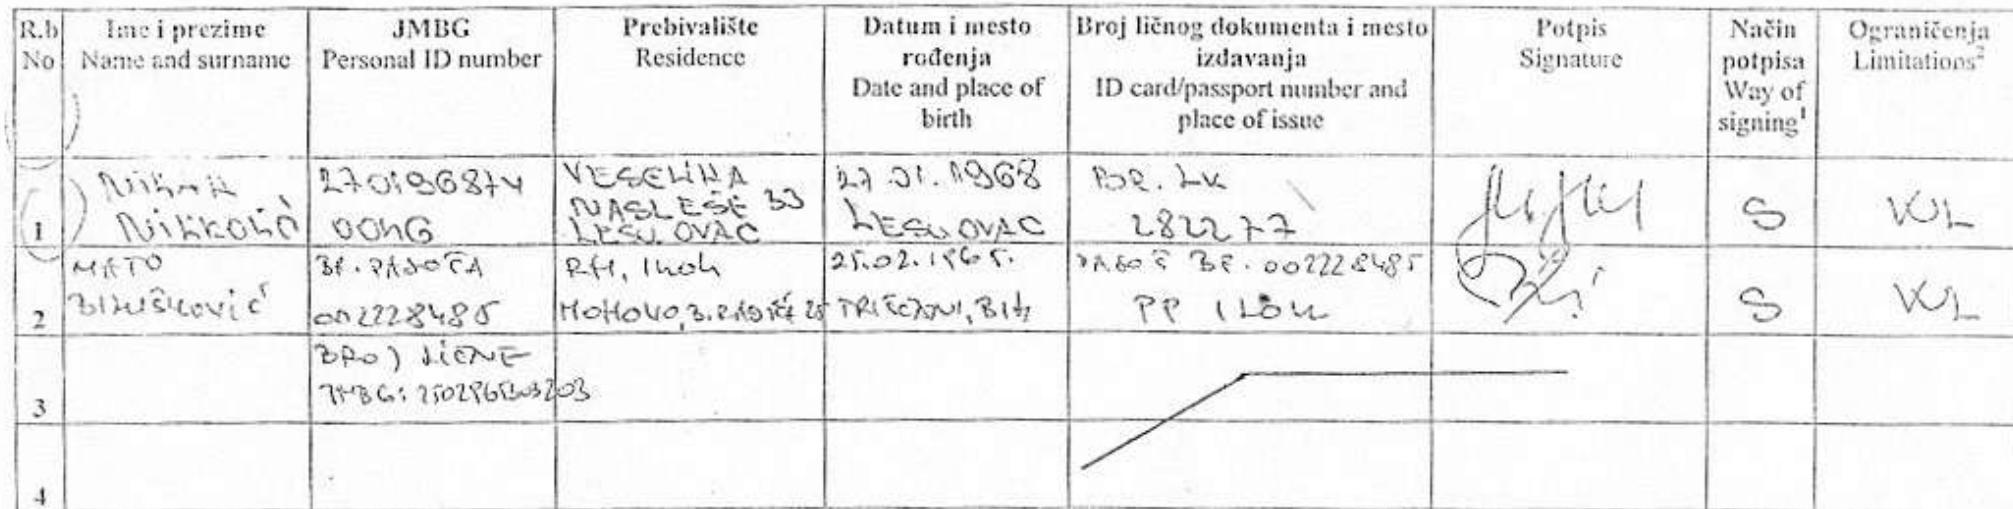 R.b No
Ime i prezime
Name and surname
JMBG
Personal ID number
Prebivalište
Residence
Datum i mesto
rođenja
Date and place of
birth
Broj ličnog dokumenta i mesto
izdavanja
ID card/passport number and
place of issue
Potpis
Signature
Način
potpisa
Way of
signing1
Ograničenja
Limitations2
1
VESELINA
NASLEŠE 33
27.01.1968
BR. LK
282277
S
KL
2
MATO
BR. PASOŠA
002228485
RH, Ilok
MOHOVO,
25.02.1965.
BIH
PASOŠ BR. 002228485
PP ILOK
S
KL
3
BROJ LIČNE
JMBG:
4